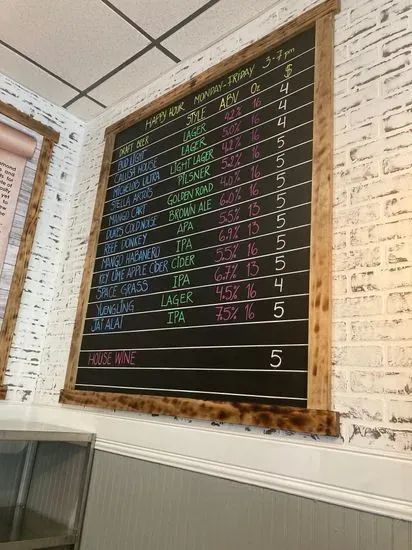 HAPPY HOUR MONDAY-FRIDAY 3-7PM
DRAFT BEER STYLE ABV Oz $
BUD LIGHT LAGER 4.2% 16 4
CALUSA HOUSE LAGER 5.0% 16 4
MICHELOB ULTRA LIGHT LAGER 4.2% 16 4
STELLA ARTOIS PILSNER 5.2% 16 5
MANGO CART GOLDEN ROAD 4.0% 16 5
DUKES COLDNOSE BROWN ALE 16 5
REEF DONKEY APA 5.5% 13 5
MANGO HABANERO IPA 6.9% 13 5
KEY LIME APPLE CIDER CIDER 5.5% 16 5
SPACE GRASS IPA 6.7% 13 5
YUENGLING LAGER 4.5% 16 4
JAI ALAI IPA 7.5% 16 5
HOUSE WINE 5